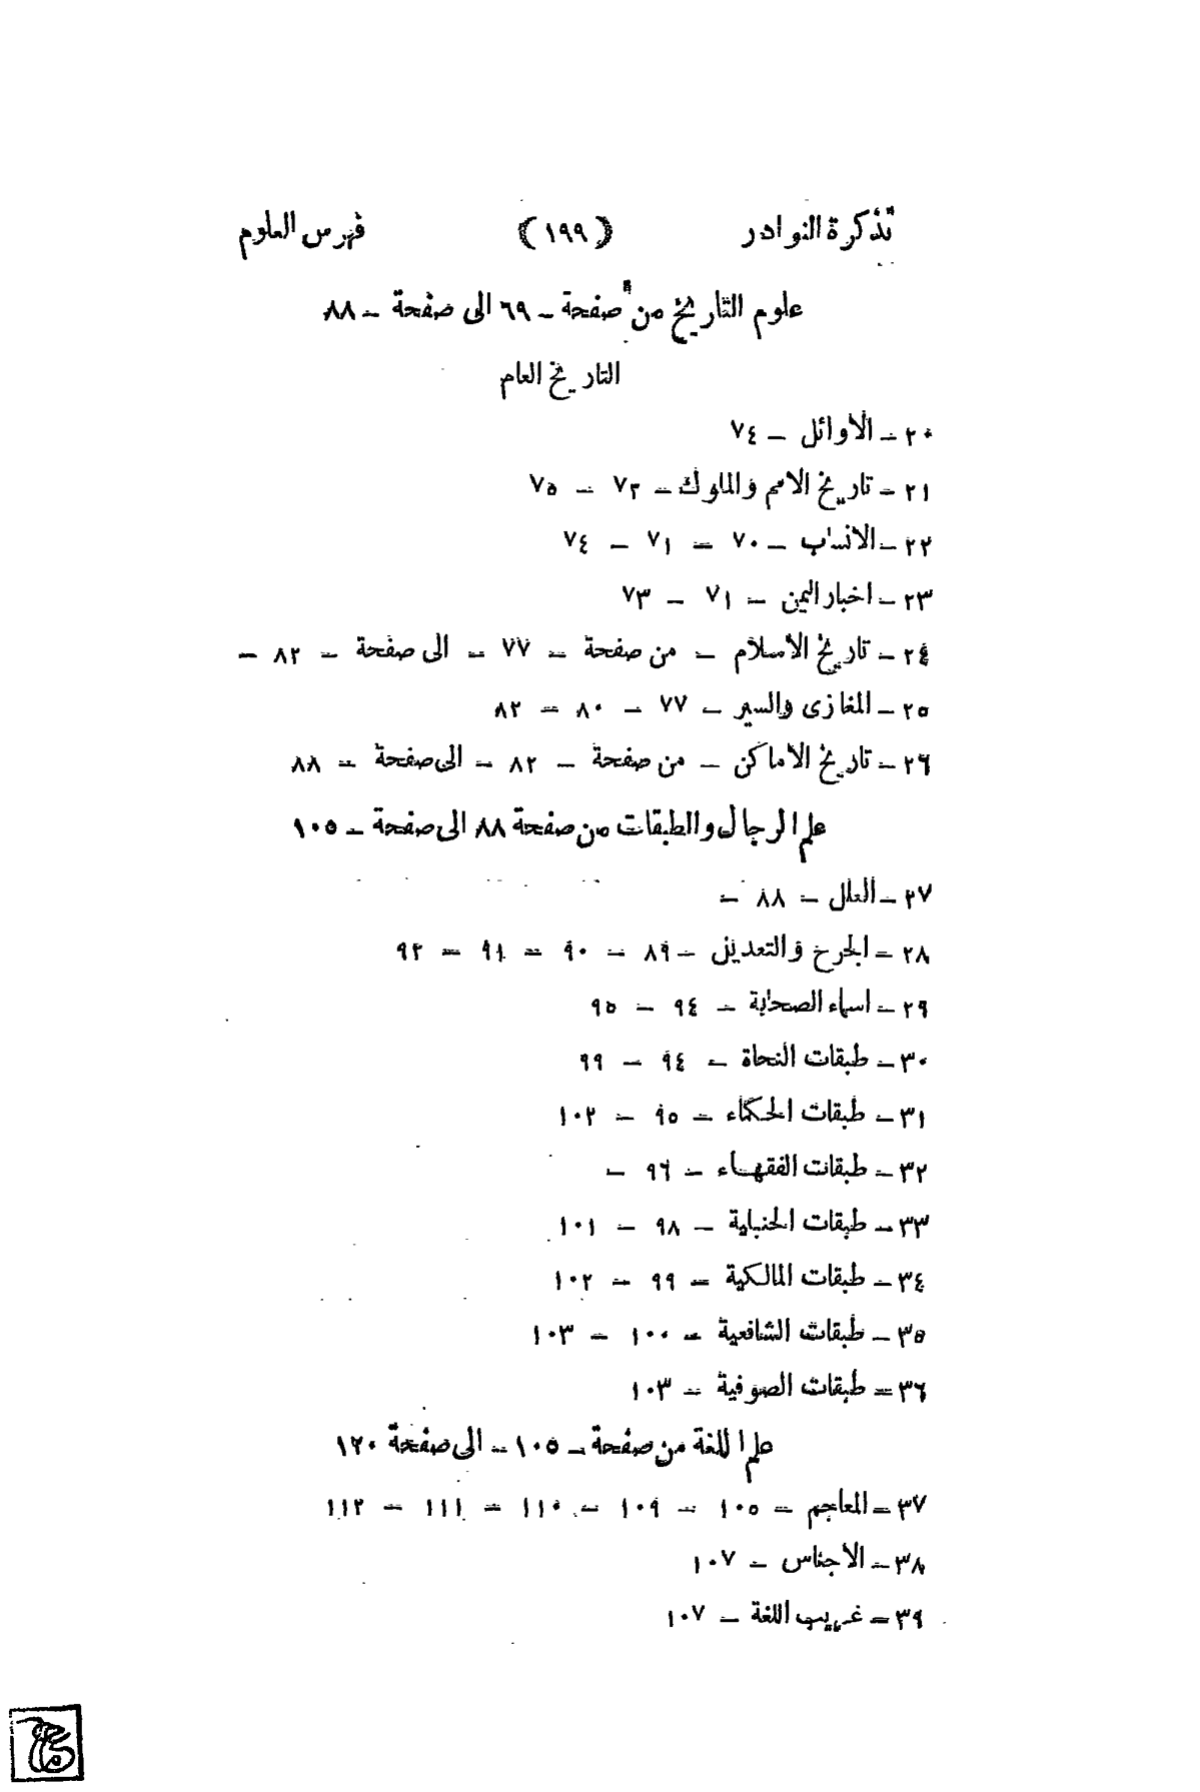 تذكرة النوادر (١٩٩) فهرس العلوم
علوم التاريخ من صفحة – ٦٩ الى صفحة – ٨٨
التاريخ العام
٢٠ – الأوائل – ٧٤
٢١ – تاريخ الامم والملوك – ٧٢ – ٧٥
٢٢ – الانساب – ٧٠ – ٧١ – ٧٤
٢٣ – اخبار اليمن – ٧١ – ٧٣
٢٤ – تاريخ الاسلام – من صفحة – ٧٧ – الى صفحة – ٨٢ –
٢٥ – المغازى والسير – ٧٧ – ٨٠ – ٨٢
٢٦ – تاريخ الأماكن – من صفحة – ٨٢ – الى صفحة – ٨٨
علم الرجال والطبقات من صفحة ٨٨ الى صفحة – ١٠٥
٢٧ – العلل – ٨٨ –
٢٨ – الجرح والتعديل – ٨٩ – ٩٠ – ٩١ – ٩٢
٢٩ – اسماء الصحابة – ٩٤ – ٩٥
٣٠ – طبقات النحاة – ٩٤ – ٩٩
٣١ – طبقات الحكماء – ٩٥ – ١٠٢
٣٢ – طبقات الفقهاء – ٩٦ –
٣٣ – طبقات الحنبلية – ٩٨ – ١٠١
٣٤ – طبقات المالكية – ٩٩ – ١٠٢
٣٥ – طبقات الشافعية – ١٠٠ – ١٠٣
٣٦ – طبقات الصوفية – ١٠٣
علم اللغة من صفحة – ١٠٥ – الى صفحة ١٢٠
٣٧ – المعاجم – ١٠٥ – ١٠٩ – ١١٠ – ١١١ – ١١٢
٣٨ – الأجناس – ١٠٧
٣٩ – غريب اللغة – ١٠٧